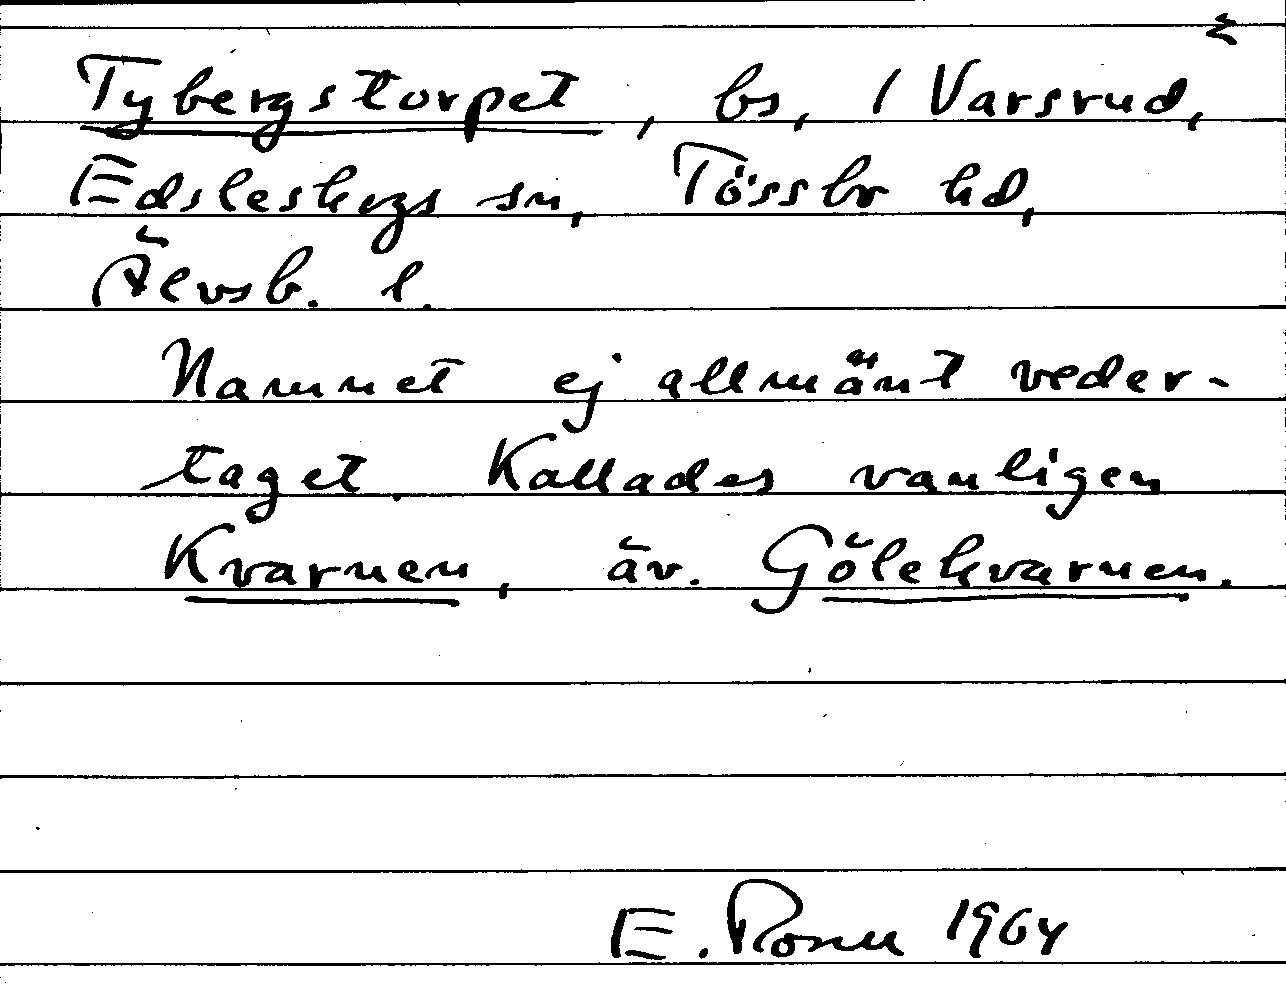 Tybergstorpet, bs, / Varsrud,
Edsleskogs sn, Tössbo hd,
Älvsb. l.
Namnet ej allmänt veder-
taget. Kallades vanligen
Kvarnen, äv. Gölekvarnen.
E. 1964